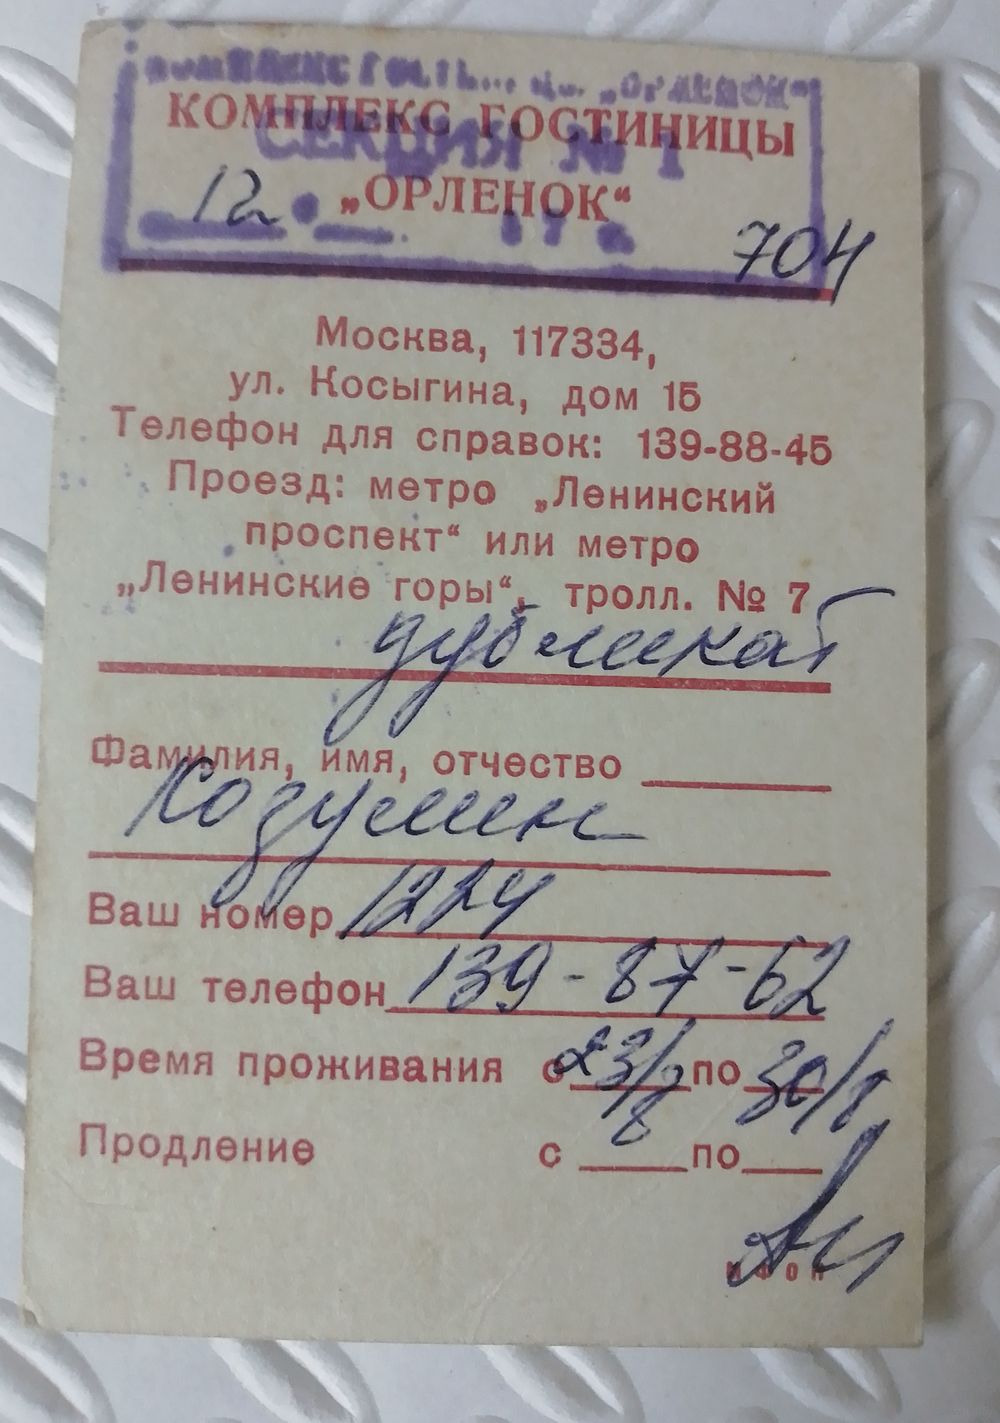 КОМПЛЕКС ГОСТИНИЦЫ
„ОРЛЕНОК“
СЕКЦИЯ № 1
12
704
Москва, 117334,
ул. Косыгина, дом 15
Телефон для справок: 139-88-45
Проезд: метро „Ленинский
проспект“ или метро
„Ленинские горы“, тролл. № 7
дубликат
Фамилия, имя, отчество
Козумен
Ваш номер 1224
Ваш телефон 139-87-62
Время проживания с 23/8 по 30/8
Продление с по